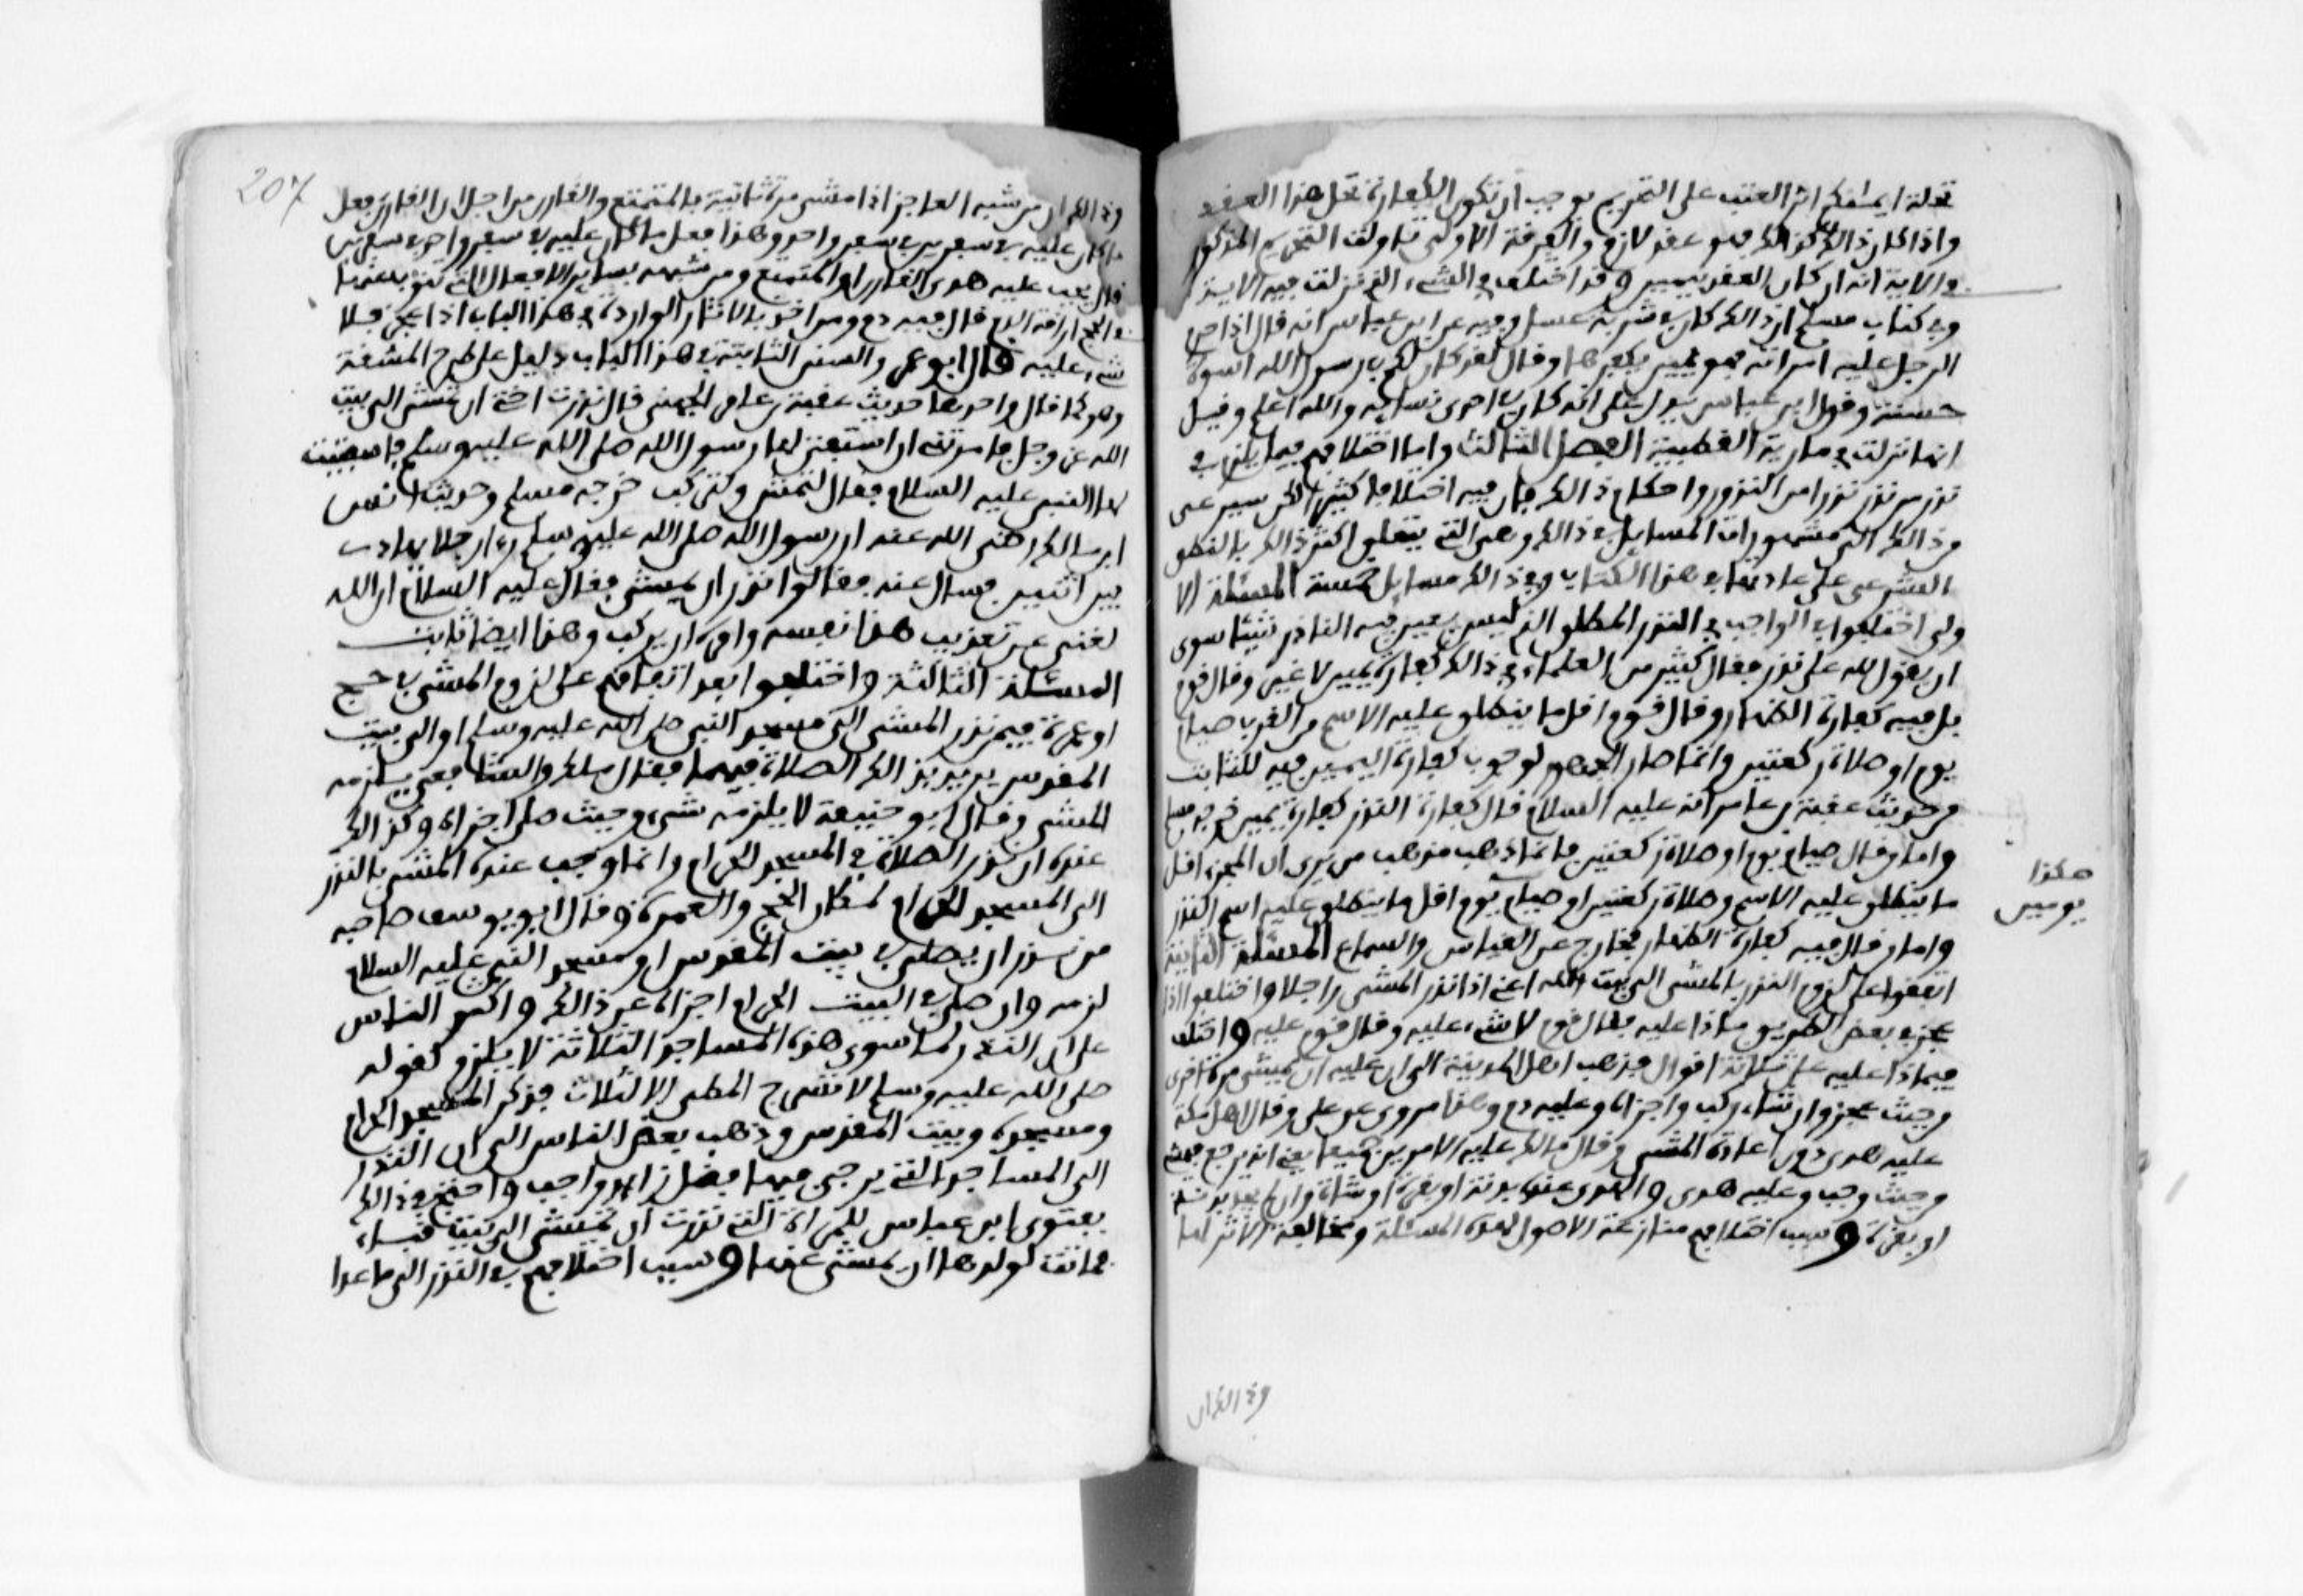 تحلة ايمنكم اثر العتب على التحريم يوجب ان تكون الكفارة تحل هذا العقد
واذا كان ذالك كذالك فهو عقد لازم والفرقة الاولى تاولت التحريم المذكور
في الاية انه ان كان العقد بيمين وقد اختلف في الشيء الذي نزلت فيه الاية
وفي كتاب مسلم ان ذالك كان في شربة عسل وفيه عن ابن عباس انه قال اذا حرم
الرجل عليه امراته فهو يمين يكفرها وقال لقد كان لكم في رسول الله اسوة
حسنة وقول ابن عباس يدل على انه كان في احدى نسايه والله اعلم وقيل
انها نزلت في مارية القبطية الفصل الثالث واما اختلافهم فيما يلزم في
نذر من نذر نذرا من النذور واحكام ذالك فان فيه اختلافا كثيرا لكن سيرعى
من ذالك الى مشهورات المسايل في ذالك وهي التي يتعلق اكثر ذالك بالنطق
الشرعي على عادتنا في هذا الكتاب وفي ذالك مسايل خمسة المسئلة الا
ولى اختلفوا في الواجب في النذر المطلق الذي ليس يعين فيه الناذر شيئا سوى
ان يقول لله علي نذر فقال كثير من العلماء في ذالك كفارة يمين لا غير وقال قوم
بل فيه كفارة الظهار وقال قوم اقل ما ينطلق عليه الاسم من القرب صيام
يوم او صلاة ركعتين وانما صار الجمهور لوجوب كفارة اليمين فيه للثابت
من حديث عقبة بن عامر انه عليه السلام قال كفارة النذر كفارة يمين خرجه مسلم
واما من قال صيام يوم او صلاة ركعتين فانما ذهب مذهب من يرى ان المجزء اقل
ما ينطلق عليه الاسم وصلاة ركعتين او صيام يوم اقل ما ينطلق عليه اسم النذر
واما من قال فيه كفارة الظهار فخارج عن القياس والسماع المسئلة الثانية
اتفقوا على لزوم النذر بالمشي الى بيت الله اعني اذا نذر المشي راجلا واختلفوا اذا
عجز في بعض الطريق ماذا عليه فقال قوم لا شيء عليه وقال قوم عليه واختلفوا
فيماذا عليه على ثلاثة اقوال فذهب اهل المدينة الى ان عليه ان يمشي مرة اخرى
من حيث عجز وان شاء ركب واجزاه وعليه دم وهذا مروي عن علي وقال اهل مكة
عليه هدي دون اعادة المشي وقال مالك عليه الامرين جميعا يعني انه يرجع فيمشي
من حيث وجب وعليه هدي والهدي عنده بدنة او بقرة او شاة وان لم يجد بدنة
او بقرة وسبب اختلافهم منازعة الاصول لهذه المسئلة ومخالفة الاثر لها
هكذا
يوميين
وذالك ان
207
وذالك ان من شبه العاجز اذا مشى مرة ثانية بالمتمتع والقارن من اجل ان القارن فعل
ما كان عليه في سفرين في سفر واحد وهذا فعل ما كان عليه في سفر واحد في سفرين
قال يجب عليه هدي القارن او المتمتع ومن شبهه بساير الافعال التي تنوب عنها
في الحج اراقة الدم قال فيه دم ومن اخذ بالاثار الواردة في هذا الباب اذا عجز فلا
شيء عليه قال ابو عمر والسنن الثابتة في هذا الباب دليل على طرح المشقة
وهو كما قال واحدها حديث عقبة بن عامر الجهني قال نذرت اختي ان تمشي الى بيت
الله عز وجل فامرتني ان استفتي لها رسول الله صلى الله عليه وسلم فاستفتيت
لها النبي عليه السلام فقال لتمش ولتركب خرجه مسلم وحديث انس
ابن مالك رضي الله عنه ان رسول الله صلى الله عليه وسلم رءا رجلا يهادى
بين اثنين فسال عنه فقالوا نذر ان يمشي فقال عليه السلام ان الله
لغني عن تعذيب هذا نفسه وامره ان يركب وهذا ايضا ثابت
المسئلة الثالثة واختلفوا بعد اتفاقهم على لزوم المشي في حج
او عمرة فيمن نذر المشي الى مسجد النبي صلى الله عليه وسلم او الى بيت
المقدس يريد بذالك الصلاة فيهما فقال مالك والشافعي يلزمه
المشي وقال ابو حنيفة لا يلزمه شيء وحيث صلى اجزاه وكذالك
عنده ان نذر الصلاة في المسجد الحرام وانما وجب عنده المشي بالنذر
الى المسجد الحرام لمكان الحج والعمرة وقال ابو يوسف صاحبه
من نذر ان يصلي في بيت المقدس او مسجد النبي عليه السلام
لزمه وان صلى في البيت الحرام اجزاه عن ذالك واكثر الناس
على ان النذر لما سوى هذه المساجد الثلاثة لا يلزم لقوله
صلى الله عليه وسلم لا تسرج المطي الا لثلاث فذكر المسجد الحرام
ومسجده وبيت المقدس وذهب بعض الناس الى ان النذر
الى المساجد التي يرجى فيها فضل زايد واجب واحتج في ذالك
بفتوى ابن عباس للمراة التي نذرت ان تمشي الى بيت قباء
فماتت لولدها ان يمشي عنها وسبب اختلافهم في النذر الى ما عدا